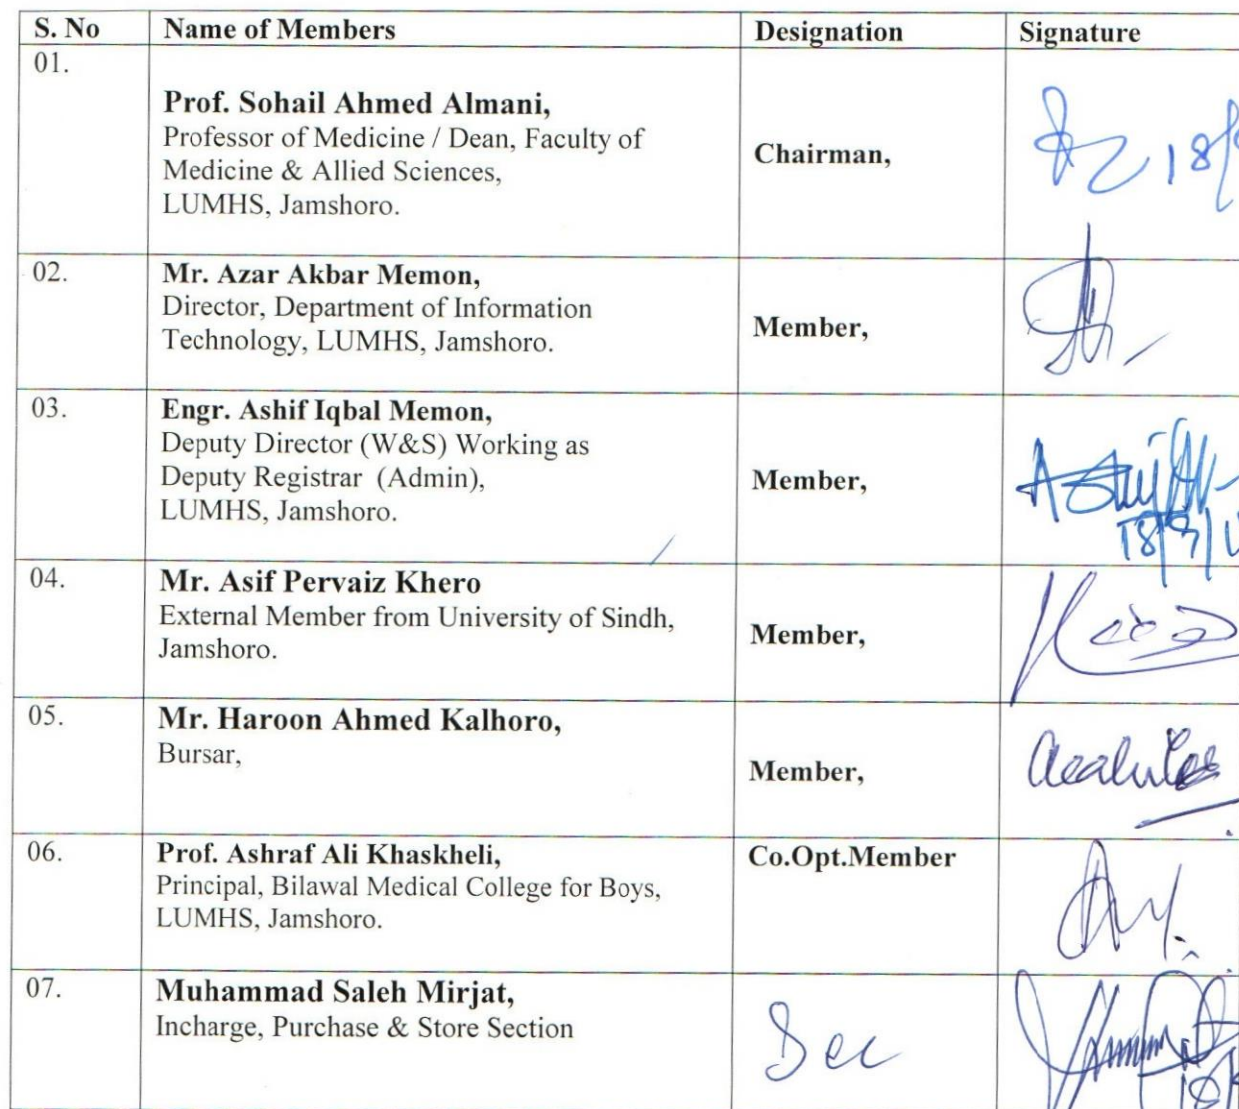 S. No Name of Members Designation Signature
01.
Prof. Sohail Ahmed Almani,
Professor of Medicine / Dean, Faculty of
Medicine & Allied Sciences,
LUMHS, Jamshoro.
Chairman,
18/
02.
Mr. Azar Akbar Memon,
Director, Department of Information
Technology, LUMHS, Jamshoro.
Member,
03.
Engr. Ashif Iqbal Memon,
Deputy Director (W&S) Working as
Deputy Registrar (Admin),
LUMHS, Jamshoro.
Member,
18/9/
04.
Mr. Asif Pervaiz Khero
External Member from University of Sindh,
Jamshoro.
Member,
05.
Mr. Haroon Ahmed Kalhoro,
Bursar,
Member,
06.
Prof. Ashraf Ali Khaskheli,
Principal, Bilawal Medical College for Boys,
LUMHS, Jamshoro.
Co.Opt.Member
07.
Muhammad Saleh Mirjat,
Incharge, Purchase & Store Section
Sec
18/